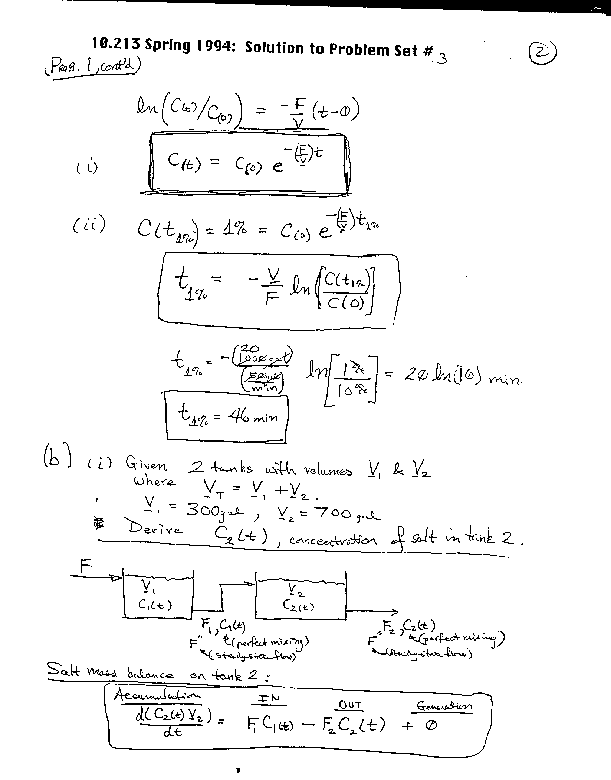 10.213 Spring 1994: Solution to Problem Set # 3
2
(Prob. 1, cont'd)
ln(C(t)/C(0)) = -F/V (t-0)
(i) C(t) = C(0) e^-(F/V)t
(ii) C(t1%) = 1% = C(0) e^-(F/V)t1%
t1% = -V/F ln[C(t1%)/C(0)]
t1% = -(1000 gal)/(50 gal/min) ln[1%/10%] = 20 ln(10) min
20
t1% = 46 min
(b) (i) Given 2 tanks with volumes V1 & V2
where VT = V1 + V2.
V1 = 300 gal, V2 = 700 gal
Derive C2(t), concentration of salt in tank 2.
F V1 C1(t) V2 C2(t)
F1, C1(t) F2, C2(t)
F (perfect mixing) F (perfect mixing)
(steady state flow) (steady state flow)
Salt mass balance on tank 2:
Accumulation IN OUT Generation
d(C2(t) V2)/dt = F1 C1(t) - F2 C2(t) + 0